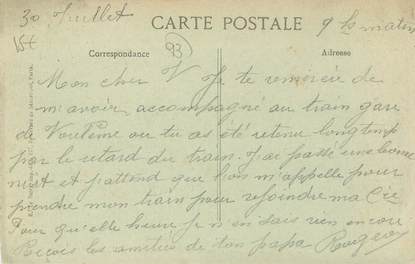 30 Juillet
CARTE POSTALE
9 h matin
15t
Correspondance
93
Adresse
Mon cher V Je te remercie de
m'avoir accompagné au train gare
de où tu as été retenu longtemp
par le retard du train. J'ai passé une bonne
nuit et j'attend que l'on m'appelle pour
prendre mon train pour rejoindre ma Cie
Pour quelle heure je n'en sais rien encore
Reçois les amitiés de ton papa